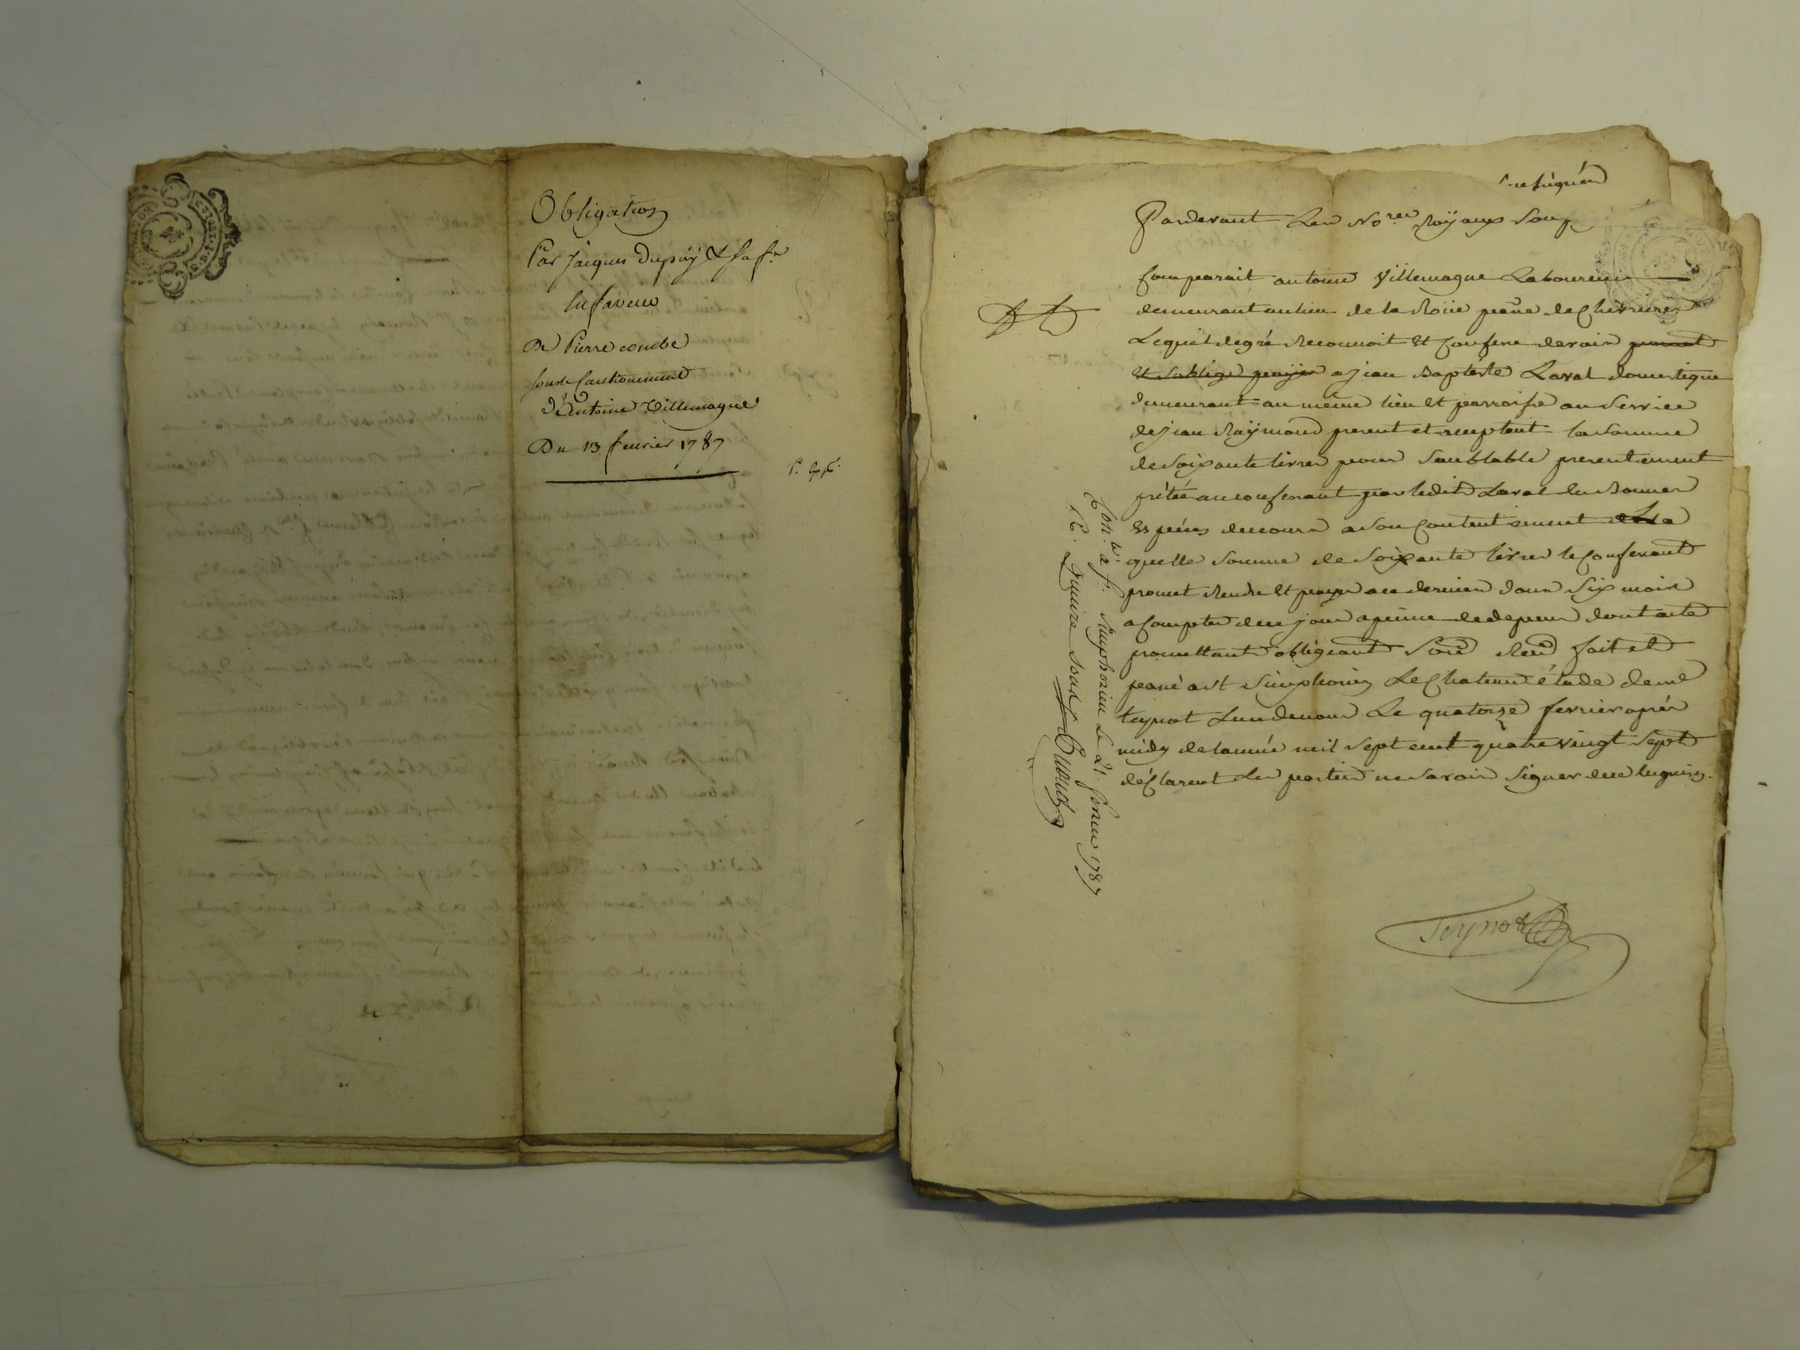 Obligation
Par Jacques Dupuy & sa fe
En faveur
De Pierre combe
sous le Cautionnement
d'Antoine Villemagne
Du 13 fevrier 1787
Pardevant Les Nores Royaux Sousignés
Comparait antoine Villemagne Laboureur
demeurant au lieu de la Roüe de Chevrieres
Lequel degré Reconnoit Et Confesse devoir promet
Et soblige payer a jean Baptiste Laval domestique
demeurant au même lieu Et parroisse au Service
de jean Raymond present et acceptant la Somme
de Soixante livres pour Semblable presentement
prêtée au confessant par ledit Laval En Bonnes
Espèces de cours a Son Contentement de La
quelle Somme de Soixante livres le Confessant
promet Rendre Et payer a ce dernier dans Six mois
a Compter de ce jour a peine de depens dont acte
promettant obligeant fait et
passé a St Simphorien Le Chateau étude de me
teynot L'un de nous Le quatorze fevrier après
midy de l'année mil Sept cent quatre vingt Sept
déclarent Les parties ne Savoir Signer de ce Enquises.
Teynot
Conlé à St Simphorien Le 21. fevrier 1787
R. Quinze Sous